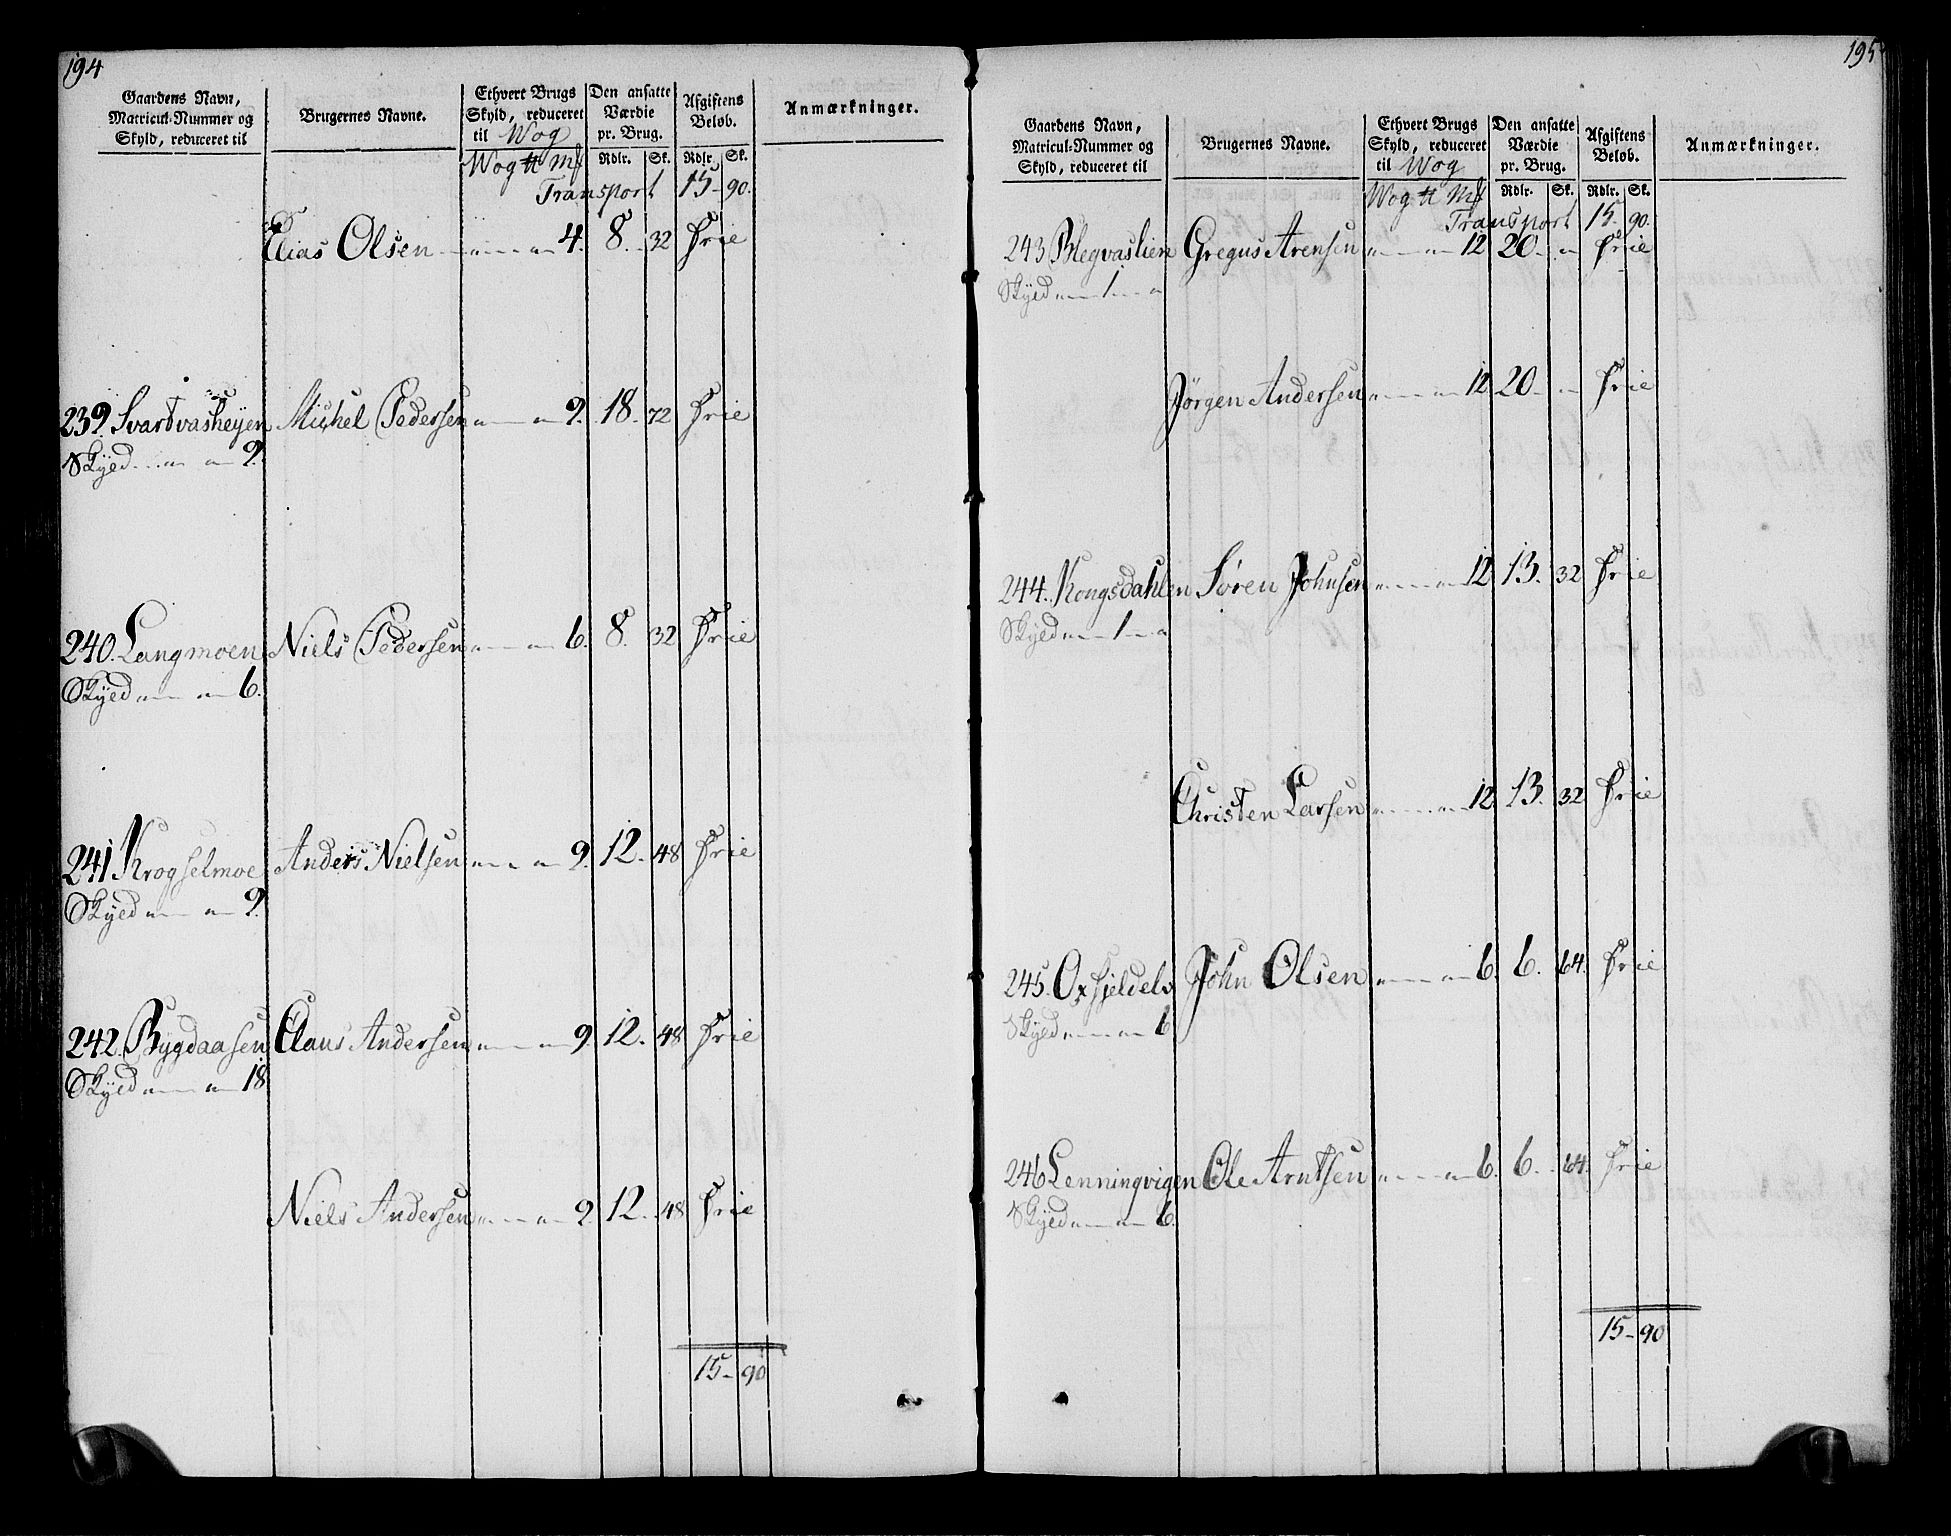 194
Gaardens Navn, Matricul-Nummer og Skyld, reduceret til
Brugernes Navne.
Ethvert Brugs Skyld, reduceret til Wog
Den ansatte Værdie pr. Brug.
Afgiftens Beløb.
Anmærkninger.
Wog ℔ Mk Rdlr. Sk. Rdlr. Sk.
Transport 15 - 90.
Elias Olsen 4. 8. 32 Frie
239. Svartvasheyen Michel Pedersen 9. 18. 72 Frie
Skyed 9.
240. Langmoen Niels Pedersen 6. 8. 32 Frie
Skyed 6.
241 Krogselmoe Anders Nielsen 9. 12. 48 Frie
Skyed 9.
242 Bygdaasen Claus Andersen 9. 12. 48 Frie
Skyed 18
Niels Andersen 9. 12. 48 Frie
15 - 90
195
Gaardens Navn, Matricul-Nummer og Skyld, reduceret til
Brugernes Navne.
Ethvert Brugs Skyld, reduceret til Wog
Den ansatte Værdie pr. Brug.
Afgiftens Beløb.
Anmærkninger.
Wog ℔ Mk Rdlr. Sk. Rdlr. Sk.
Transport 15 - 90.
243 Blegvaslien Gregus Arensen 12 20 - " Frie
Skyed 1 "
Jørgen Andersen 12 20 - " Frie
244. Kongsdahlen Søren Johnsen 12 13. 32 Frie
Skyed 1 "
Christen Larsen 12 13. 32 Frie
245. Oxfjeldelv John Olsen 6. 6. 64. Frie
Skyed 6
246 Lenningvigen Ole Arntsen 6. 6. 64. Frie
Skyed 6.
15 - 90